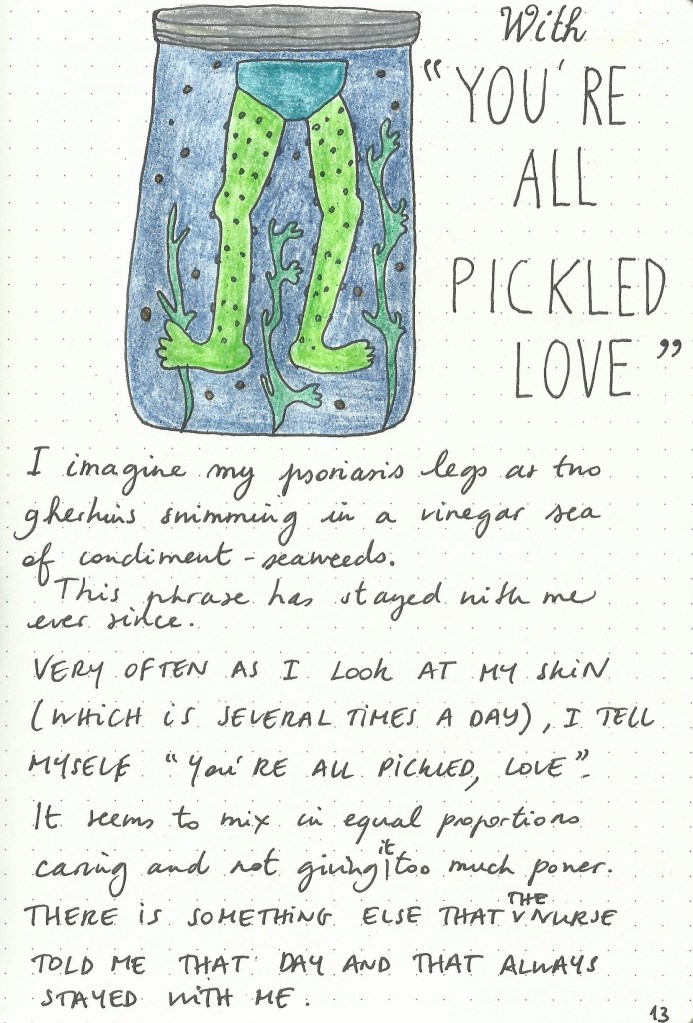 With
"YOU'RE
ALL
PICKLED
LOVE"
I imagine my psoriasis legs as two
gherkins swimming in a vinegar sea
of condiment-seaweeds.
This phrase has stayed with me
ever since.
VERY OFTEN AS I LOOK AT MY SKIN
(WHICH IS SEVERAL TIMES A DAY), I TELL
MYSELF "YOU'RE ALL PICKLED, LOVE".
It seems to mix in equal proportions
caring and not giving it too much power.
THERE IS SOMETHING ELSE THAT THE NURSE
TOLD ME THAT DAY AND THAT ALWAYS
STAYED WITH ME.
13